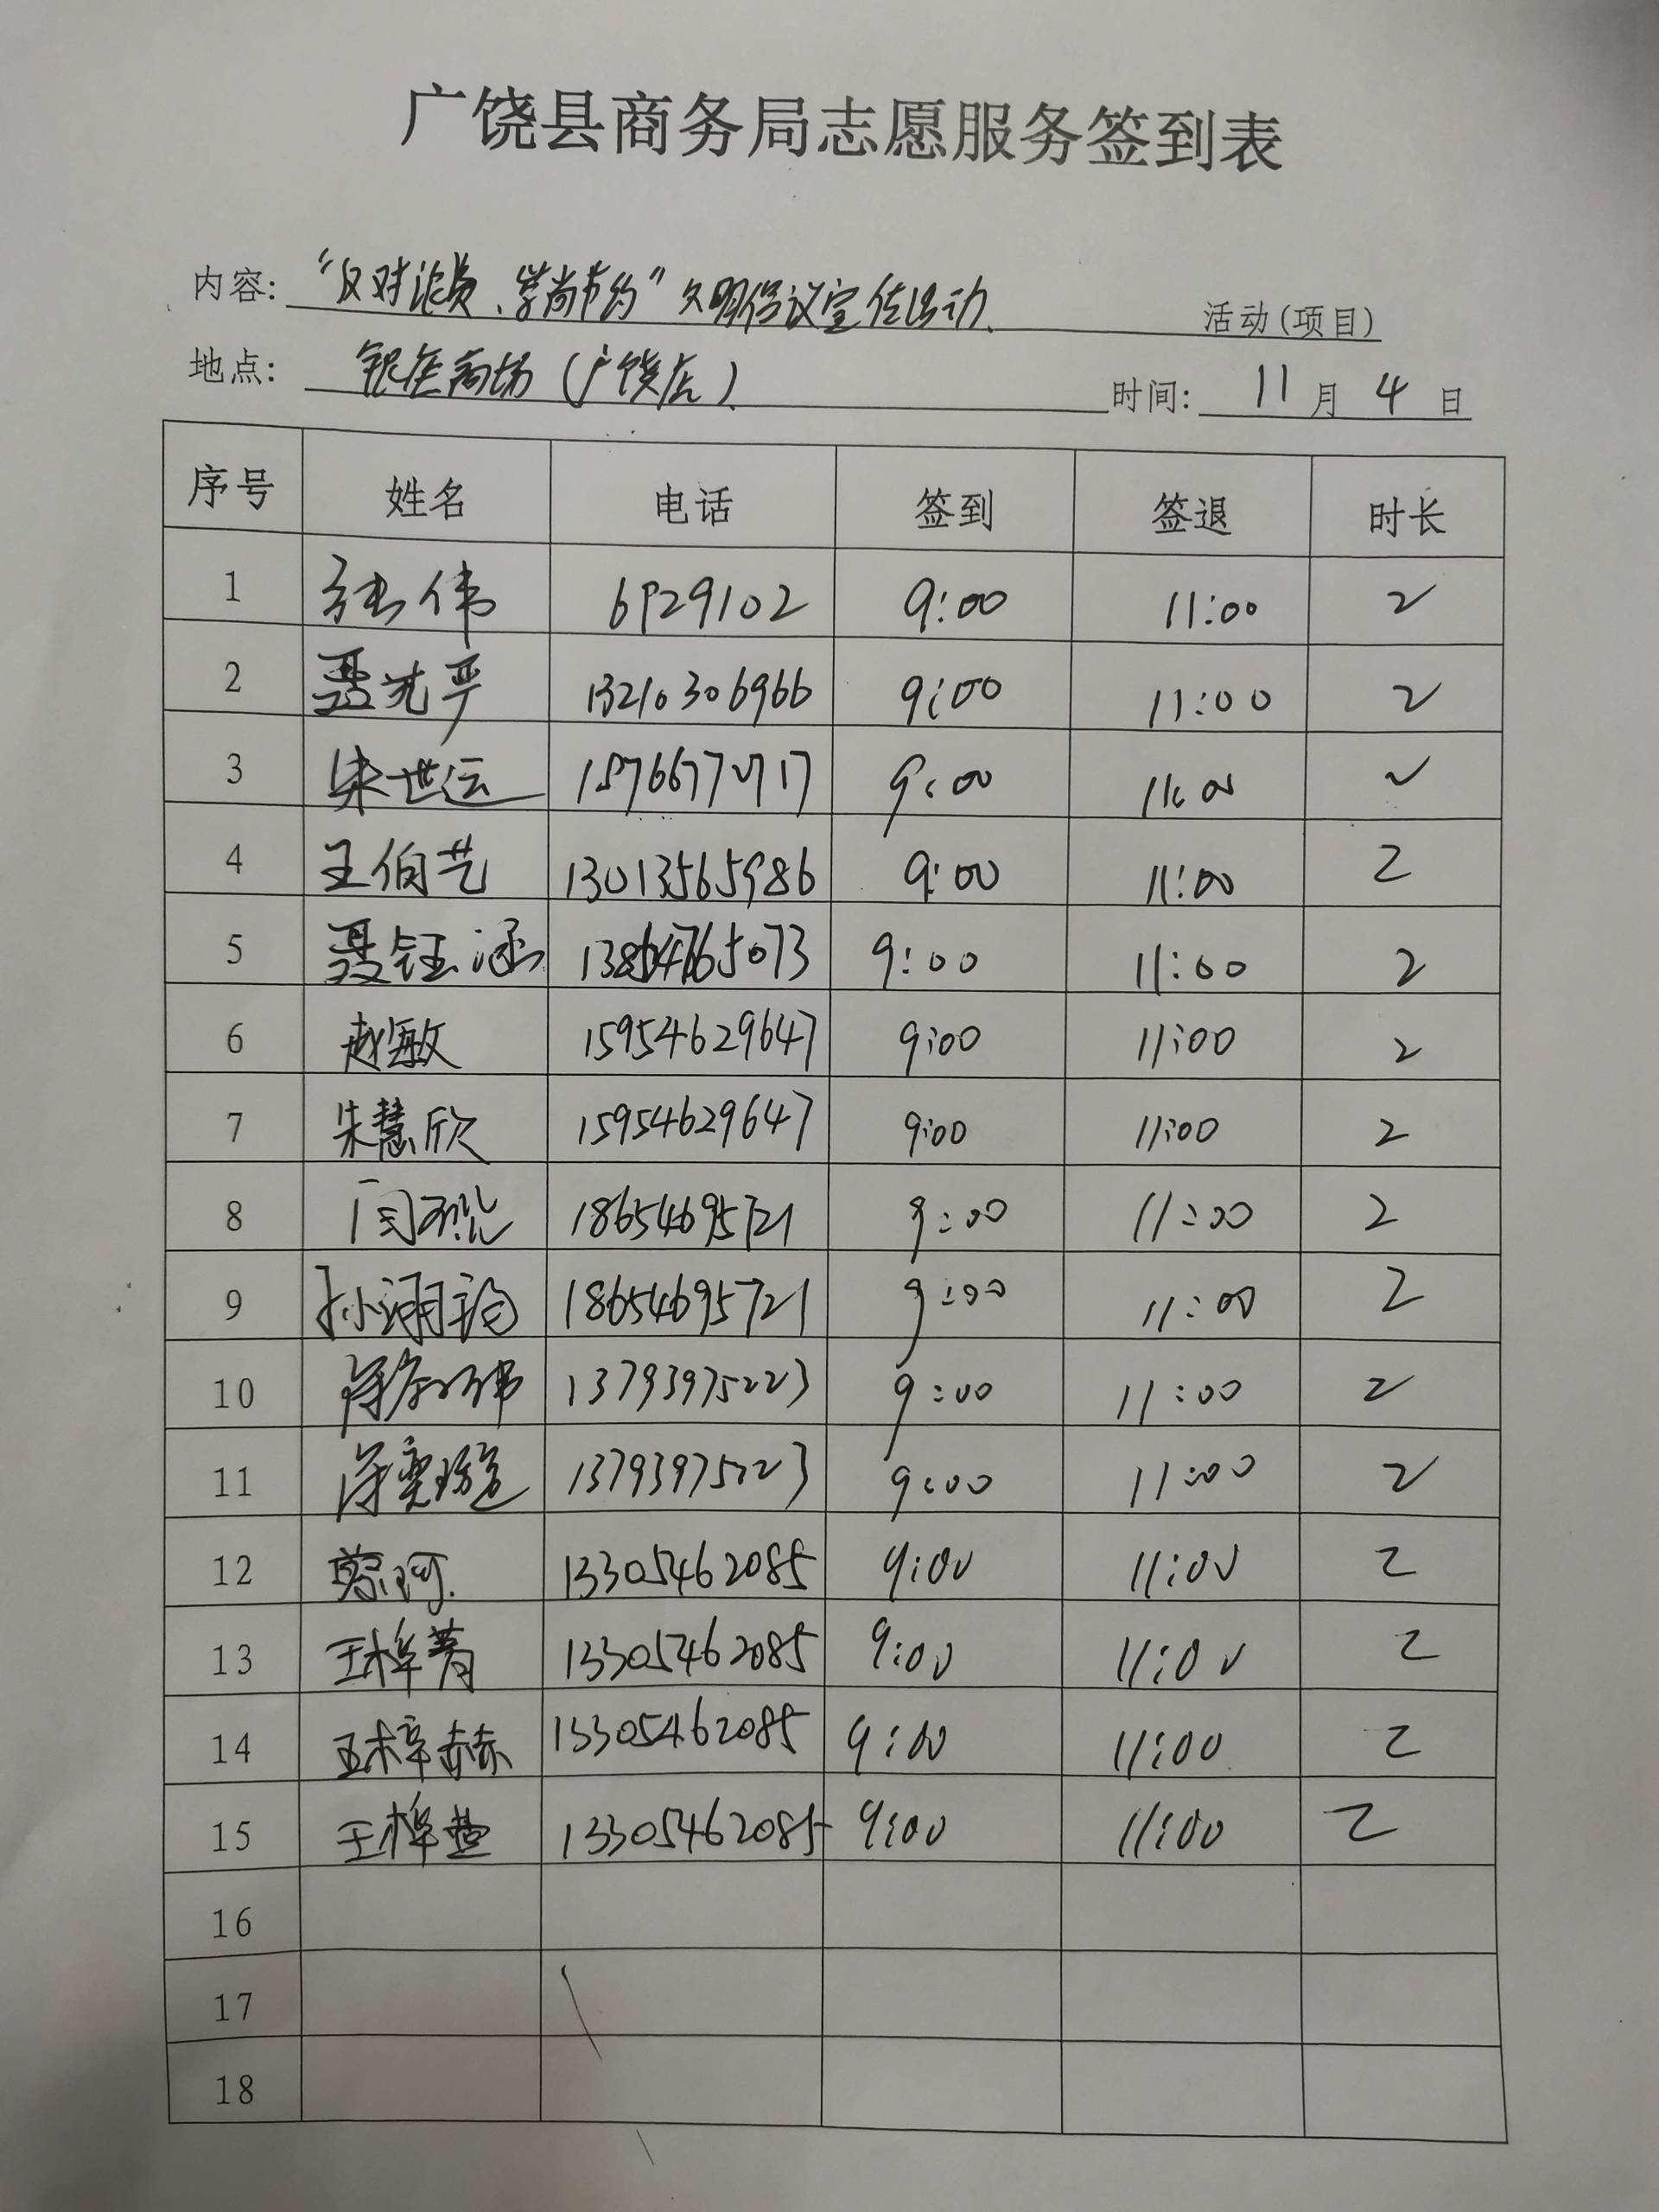 广饶县商务局志愿服务签到表
内容: "反对浪费、崇尚节约"文明倡议宣传活动 活动(项目)
地点: 银座商场(广饶店) 时间: 11月4日
序号 姓名 电话 签到 签退 时长
1 张伟 6929102 9:00 11:00 2
2 聂光平 13210306966 9:00 11:00 2
3 宋世运 9:00 11:00 2
4 王伯艺 13013565986 9:00 11:00 2
5 聂钰涵 9:00 11:00 2
6 赵敏 15954629647 9:00 11:00 2
7 朱慧欣 15954629647 9:00 11:00 2
8 18654695721 9:00 11:00 2
9 18654695721 9:00 11:00 2
10 13793975223 9:00 11:00 2
11 13793975223 9:00 11:00 2
12 13305462085 9:00 11:00 2
13 王梓菁 13305462085 9:00 11:00 2
14 王梓赫 13305462085 9:00 11:00 2
15 王梓萱 13305462085 9:00 11:00 2
16
17
18